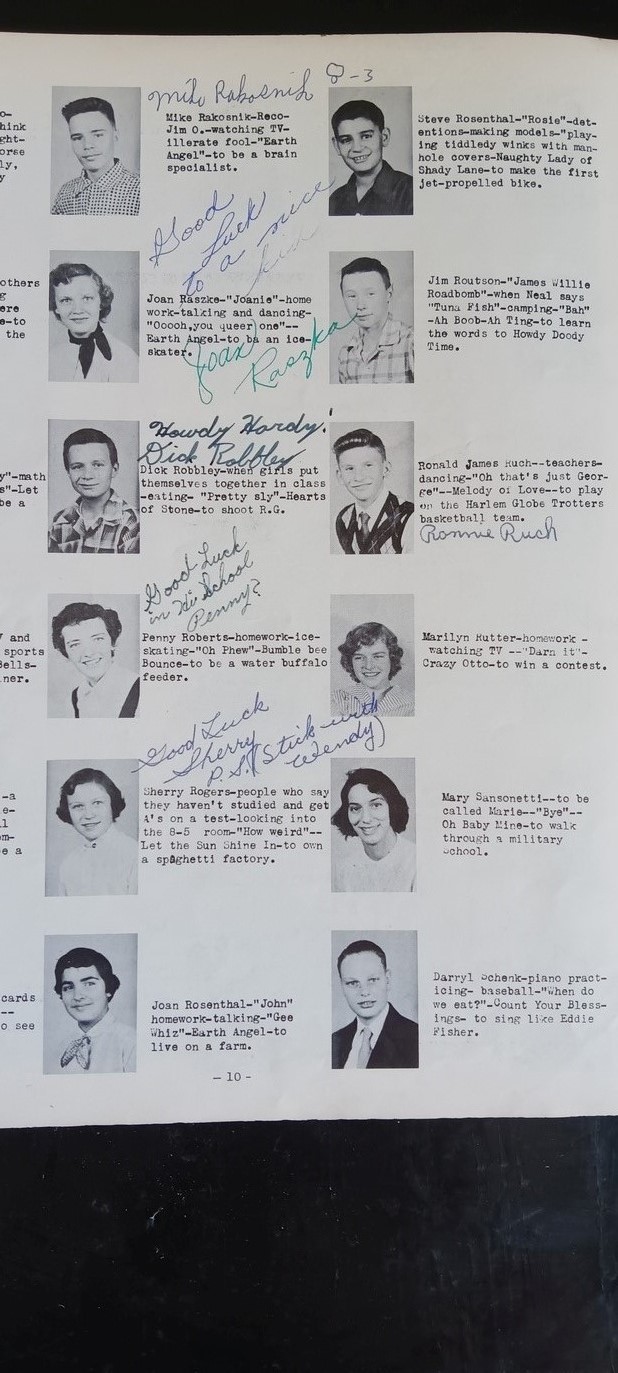 o-
hink
ght-
orse
ly,
y
others
g
ere
e-to
the
y"-math
s"-Let
be a
and
sports
Bells-
ner.
-a
e-
l
om-
e a
cards
--
o see
Mike Rakosnik 8-3
Mike Rakosnik-Reco-
Jim O.-watching TV-
illerate fool-"Earth
Angel"-to be a brain
specialist.
Good
Luck
to a nice
kid
Joan Raszke-"Joanie"-home
work-talking and dancing-
"Ooooh,you queer one"--
Earth Angel-to be an ice-
skater.
Joan
Raszka
Howdy Hardy!
Dick Robbley
Dick Robbley-when girls put
themselves together in class
-eating- "Pretty sly"-Hearts
of Stone-to shoot R.G.
Good Luck
in Hi School
Penny?
Penny Roberts-homework-ice-
skating-"Oh Phew"-Bumble bee
Bounce-to be a water buffalo
feeder.
Good Luck
Sherry
P.S. (Stick with
Wendy)
Sherry Rogers-people who say
they haven't studied and get
A's on a test-looking into
the 8-5 room-"How weird"--
Let the Sun Shine In-to own
a spaghetti factory.
Joan Rosenthal-"John"
homework-talking-"Gee
Whiz"-Earth Angel-to
live on a farm.
Steve Rosenthal-"Rosie"-det-
entions-making models-"play-
ing tiddledy winks with man-
hole covers-Naughty Lady of
Shady Lane-to make the first
jet-propelled bike.
Jim Routson-"James Willie
Roadbomb"-when Neal says
"Tuna Fish"-camping-"Bah"
-Ah Boob-Ah Ting-to learn
the words to Howdy Doody
Time.
Ronald James Ruch--teachers-
dancing-"Oh that's just Geor-
ge"--Melody of Love--to play
on the Harlem Globe Trotters
basketball team.
Ronnie Ruch
Marilyn Rutter-homework -
watching TV --"Darn it"-
Crazy Otto-to win a contest.
Mary Sansonetti--to be
called Marie--"Bye"--
Oh Baby Mine-to walk
through a military
School.
Darryl Schenk-piano pract-
icing- baseball-"When do
we eat?"-Count Your Bless-
ings- to sing like Eddie
Fisher.
- 10 -